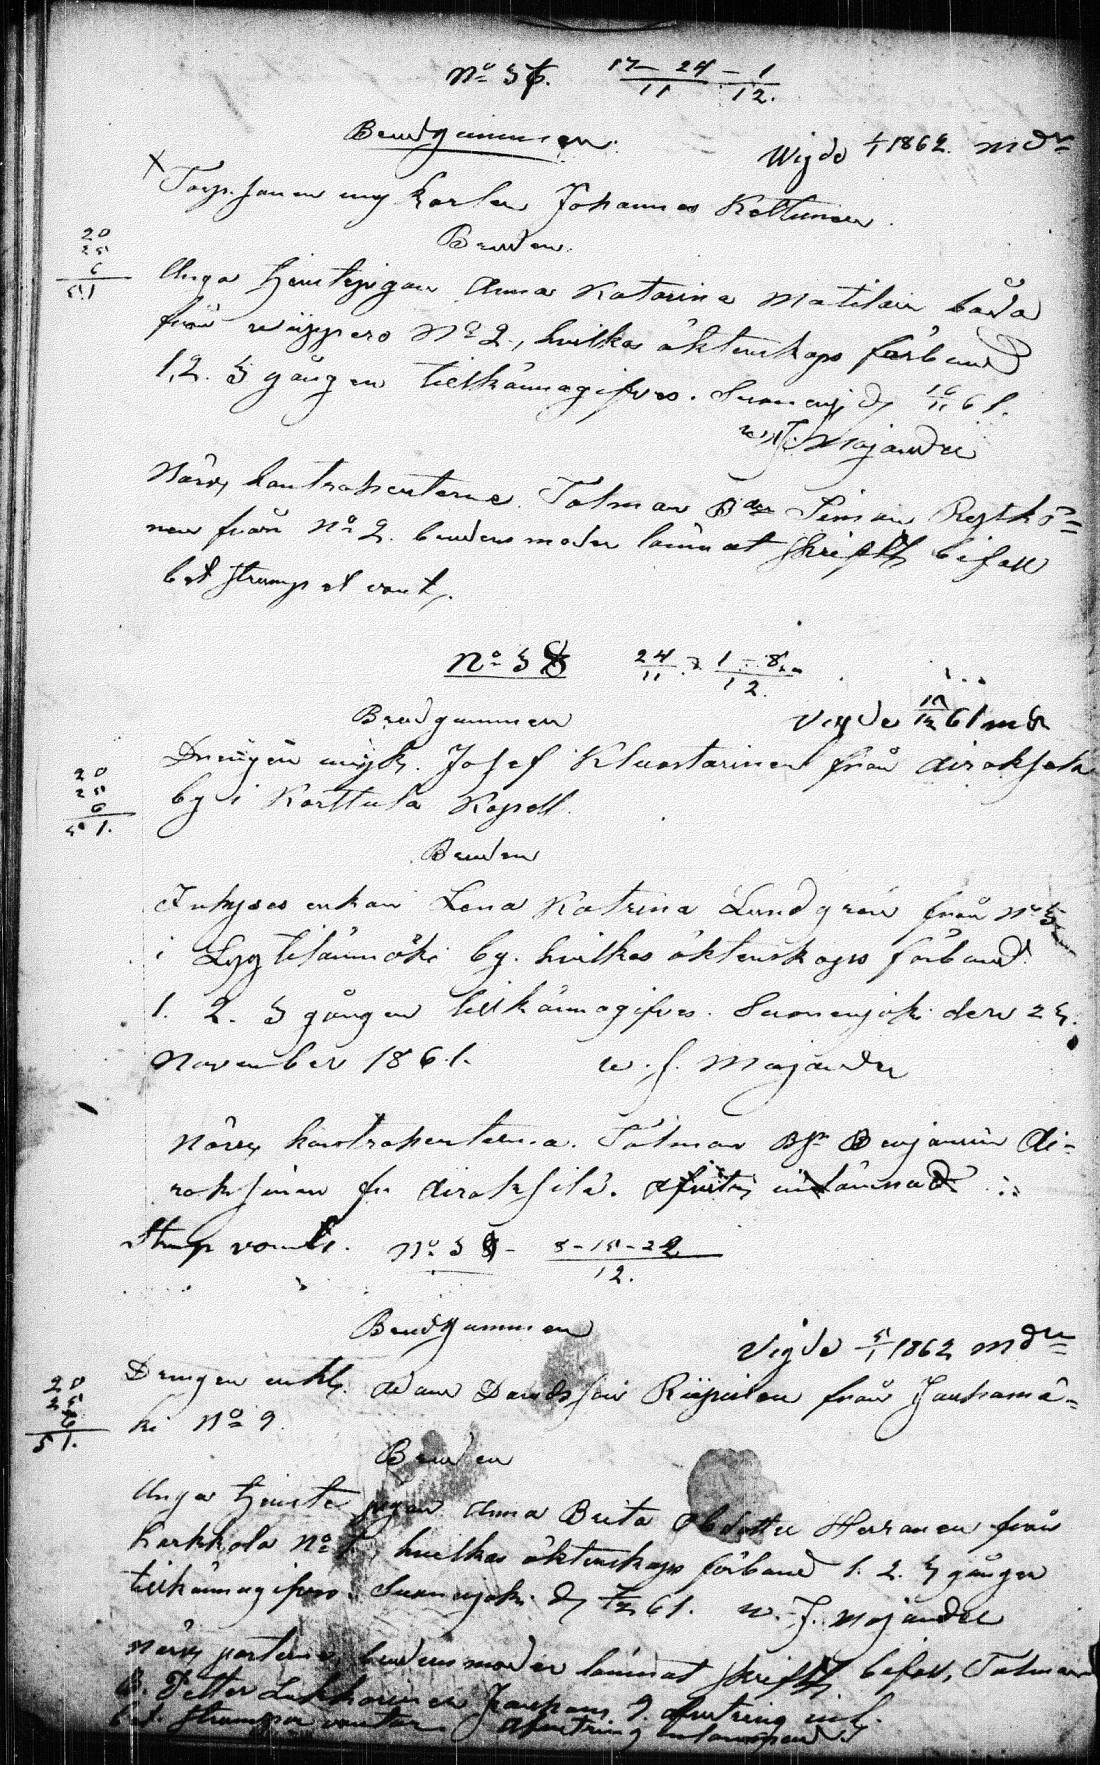 No 37. 17 – 24 – 1
11 12.
Brudgummen.
Wigde 1/1 1862. mdr
x Torp.sonen ung karlen Johannes Kettunen.
Bruden.
20
25
6
51
Unga tjenstepigan Anna Katarina Matilain båda
från wäppero No 2, hvilkas äktenskaps förbund
1, 2. 3 gången tillkännagifves. Suonenj. d. 16/11 61.
J. Majander
Närv. kontrahenterne. Talman Bder Simon
nen från No 2. brudens moder lämnat skriftl. bifall
bet. strump et vant.
No 38 24 – 1 – 8
11 12.
Brudgummen
Vigde 61 mdr
Drengen enk. Josef Kluostarinen från Airaksela
20
25
6
51.
by i Karttula Kapell.
Bruden
Inhyses enkan Lena Katrina Lundgren från No 5
i Lyytilänmäki by. hvilkas äktenskaps förbund
1. 2. 3 gången tillkännagifves. Suonenjoki den 23.
November 1861. J. Majander
Närv. kontrahenterna. Talman Bn Benjamin Ai-
raksinen fr. Airaksela. afvittr. inlämnad
Strump vant. No 39 – 8 – 15 – 22
12.
Brudgummen
Vigde 5/1 1862 mdr
Drengen enkl. Adam Davidsson Riipinen från Jauhomä-
20
25
6
51.
ki No 9.
Bruden
Unga tjenste pigan Anna Brita Olsdotter Herranen från
Karkkola No hvilkas äktenskaps förbund 1. 2. 3 gången
tillkännagifves. Suonenjoki. d. 7/12 61. J. Majander
Närv. parterne, brudens moder lämnat skriftl. bifall, Talman
B. Petter Jauhom. 9. afvittring inl.
bet. strumpor vantar. afvittring